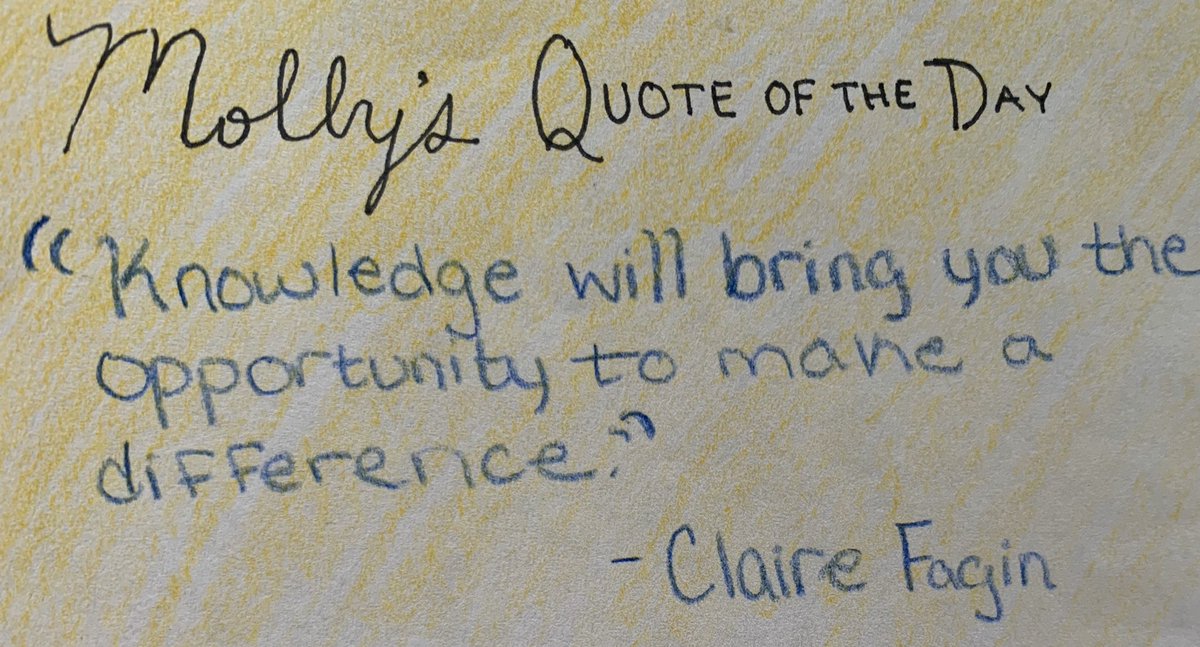 Molly's QUOTE OF THE DAY
"Knowledge will bring you the
opportunity to make a
difference."
- Claire Fagin